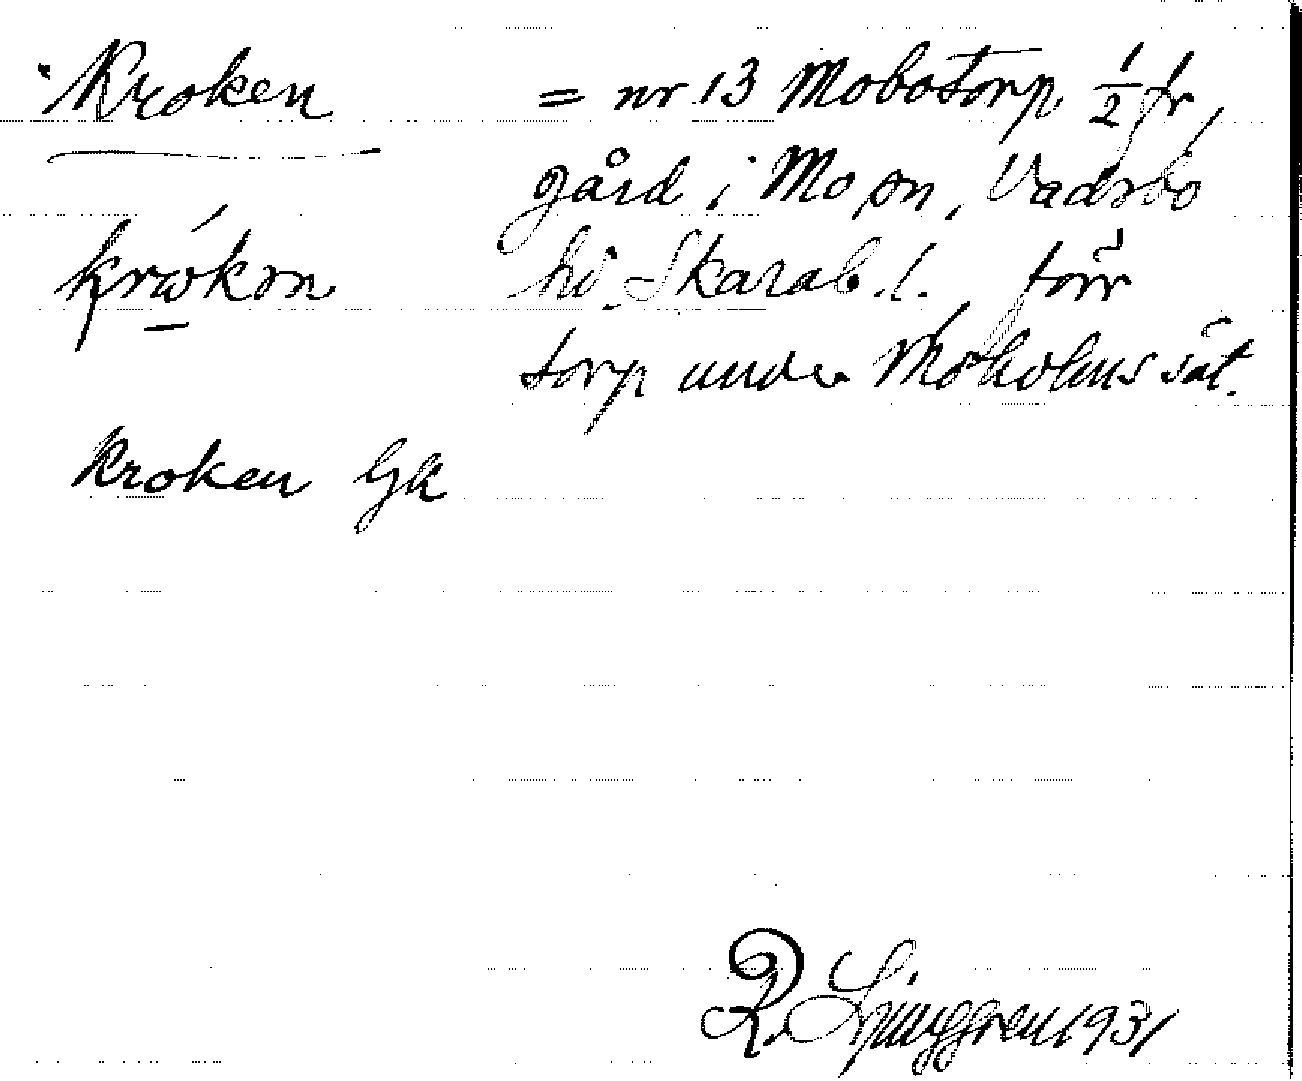 Kroken = nr 13 Mobotorp, 1/2 fr,
gård i Mo sn, Vadsbo
krókon hd. Skarab. l. förr
torp under Moholms sät.
Kroken Gk
R. Ljunggren 1931